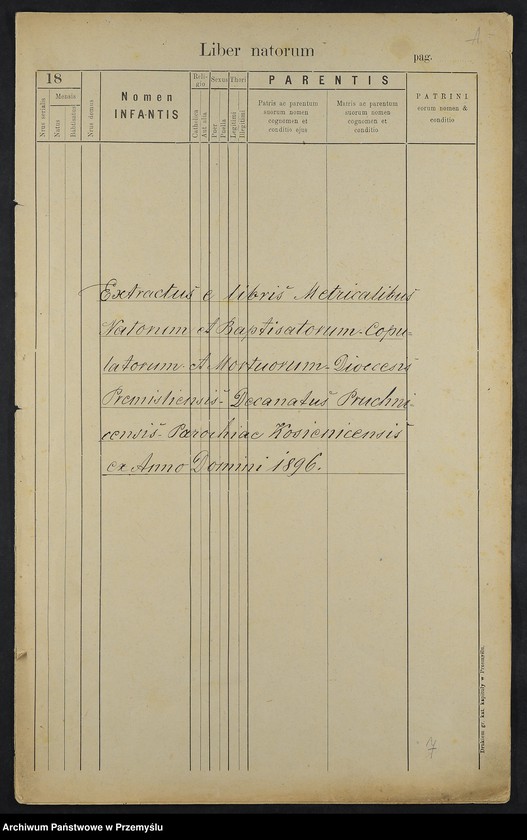 A.
Liber natorum
pag.
18
Nrus serialis
Mensis
Natus
Babtisatus
Nrus domus
Nomen
INFANTIS
Religio
Catholica
Aut alia
Sexus
Puer
Puella
Thori
Legitimi
Illegitimi
PARENTIS
Patris ac parentum
suorum nomen
cognomen et
conditio ejus
Matris ac parentum
suorum nomen
cognomen et
conditio
PATRINI
eorum nomen &
conditio
Extractus e libris Metricalibus
Natorum et Baptisatorum-Copu-
latorum et Mortuorum-Dioecesis
Premisliensis-Decanatus Pruchni-
censis-Parochiae Kosienicensis
ex Anno Domini 1896.
Drukiem gr. kat. kapituły w Przemyślu.
7
Archiwum Państwowe w Przemyślu